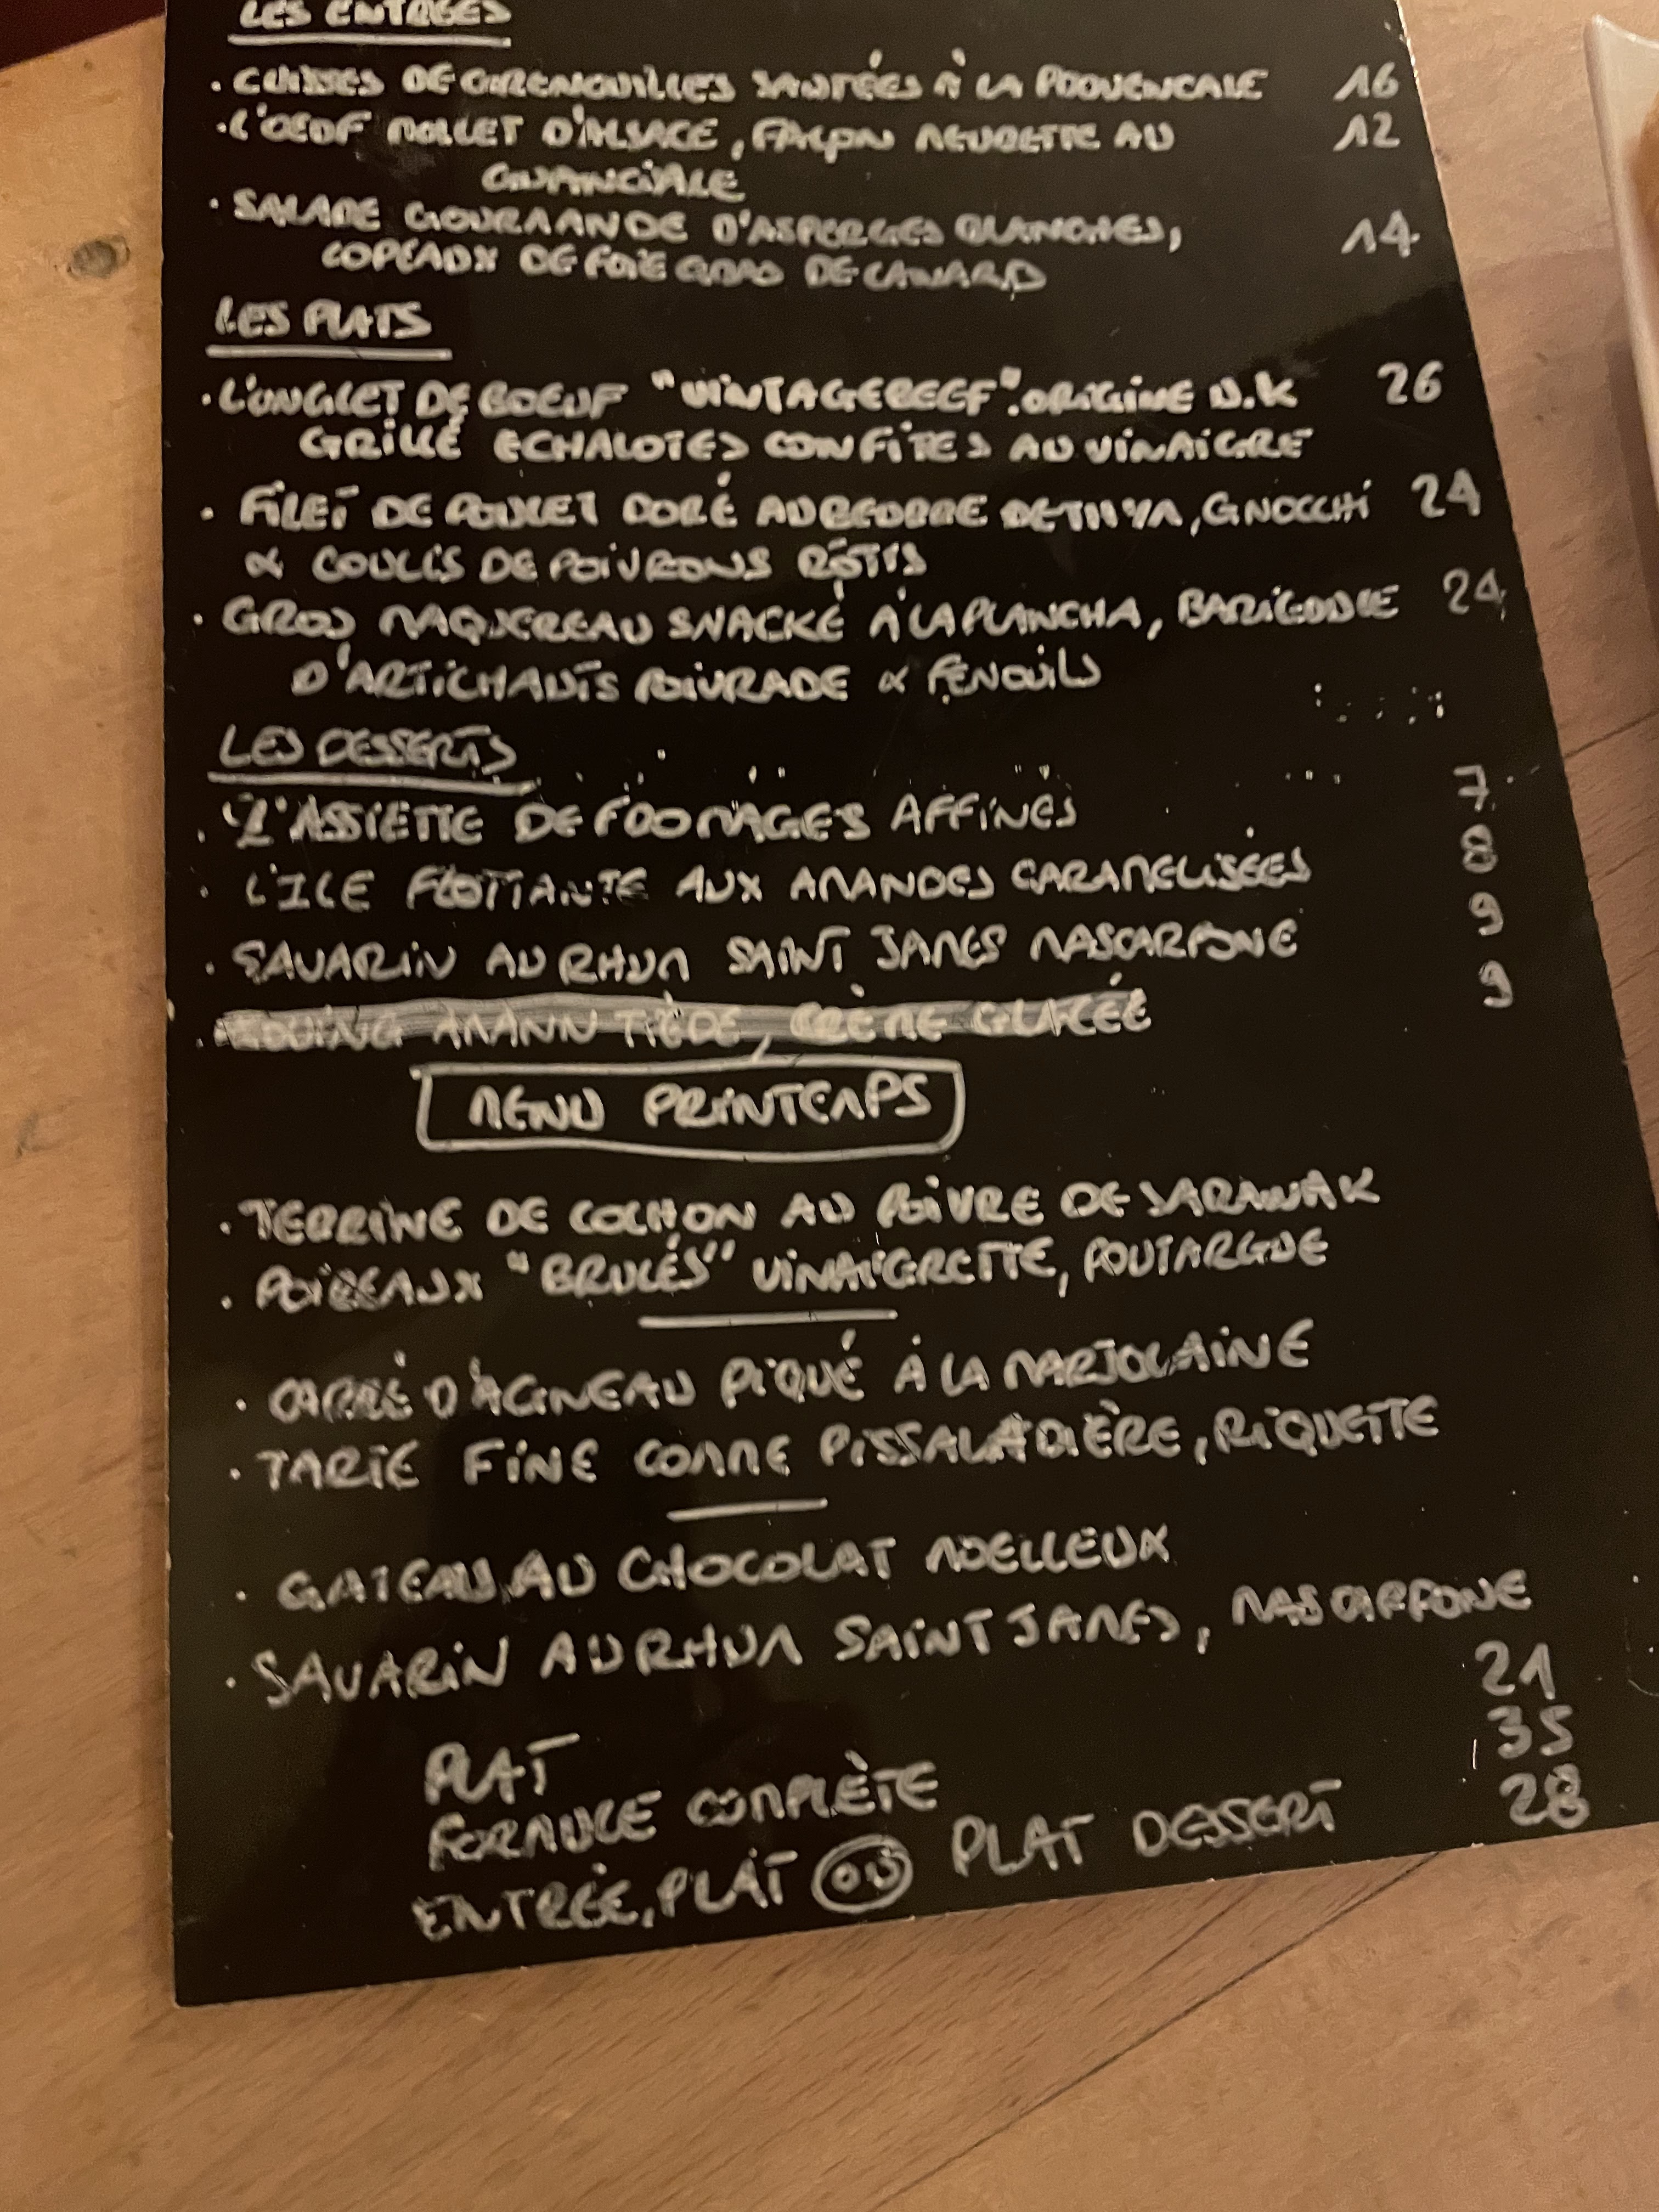 LES ENTRÉES
. CUISSES DE GRENOUILLES SAUTÉES À LA PROVENCALE 16
. L'OEUF MOLLET D'ALSACE, FAÇON MEURETTE AU 12
SALADE GOURMANDE D'ASPERGES BLANCHES, 14
COPEAUX DE FOIE GRAS DE CANARD
LES PLATS
. L'ONGLET DE BOEUF "VINTAGEBEEF". ORIGINE U.K 26
GRILLÉ ECHALOTES CONFITES AU VINAIGRE
. FILET DE POULET DORÉ AU BEURRE DE THYM, GNOCCHI 24
& COULIS DE POIVRONS RÔTIS
. GROS MAQUEREAU SNACKÉ À LA PLANCHA, BARIGOULE 24
D'ARTICHAUTS POIVRADE & FENOUILS
LES DESSERTS
. L'ASSIETTE DE FROMAGES AFFINÉS 7
. L'ILE FLOTTANTE AUX AMANDES CARAMELISÉES 8
. SAVARIN AU RHUM SAINT JAMES MASCARPONE 9
. KOUING AMANN TIÈDE, CRÈME GLACÉE 9
MENU PRINTEMPS
. TERRINE DE COCHON AU POIVRE DE SARAWAK
. POIREAUX "BRULÉS" VINAIGRETTE, POUTARGUE
. CARRÉ D'AGNEAU PIQUÉ À LA MARJOLAINE
. TARTE FINE COMME PISSALADIÈRE, RIQUETTE
. GATEAU AU CHOCOLAT MOELLEUX
. SAVARIN AU RHUM SAINT JAMES, MASCARPONE
PLAT 21
FORMULE COMPLÈTE 35
ENTRÉE, PLAT OU PLAT DESSERT 28